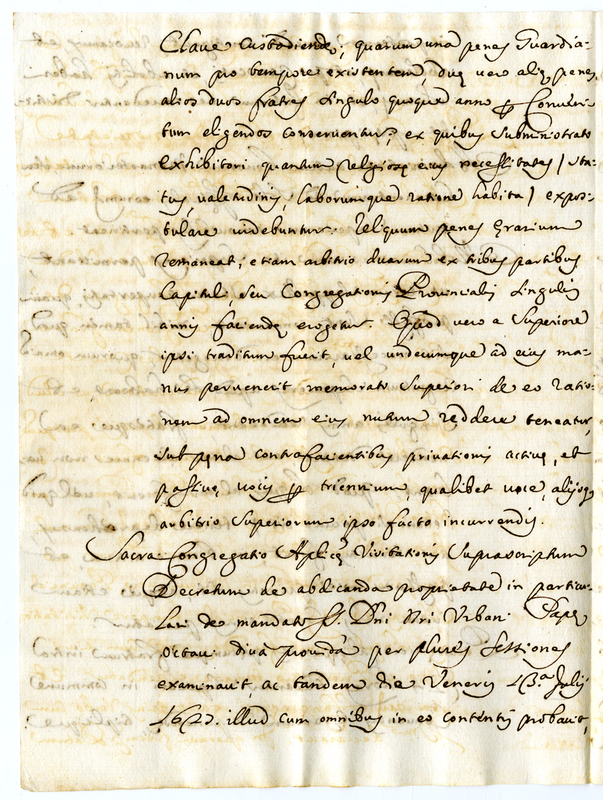 Clave Custodiendę; quarum una penes Guardia-
num pro tempore existentem, duę vero alię penes
alios duos fratres singulo quoque anno p Conven-
tum eligendos conserventur; ex quibus subministrato
exhibitori quantum religiosę eius necessitates / sta-
tus, valetudinis, laborumque ratione habita / expos-
tulare videbuntur. Reliquum penes Ęrarium
remaneat; etiam arbitrio duarum ex tribus partibus
Capituli, seu Congregationis Provincialis singulis
annis faciendę erogetur. Quod vero a Superiore
ipsi traditum fuerit, vel undecumque ad eius ma-
nus pervenerit memorato Superiori de eo ratio-
nem ad omnem eius nutum reddere teneatur,
sub pęna contrafacientibus privationis activę, et
passivę vocis p triennium, qualibet vice, alijsq
arbitrio Superiorum ipso facto incurrendis.
Sacra Congregatio Aplicę Visitationis suprascriptum
Decretum de abdicanda proprietate in particu-
lari de mandato S. Dni Nri Urbani Papę
octavi diu per plures sessiones
examinavit, ac tandem die Veneris 13.a Julij
1627. illud cum omnibus in eo contentis probavit,